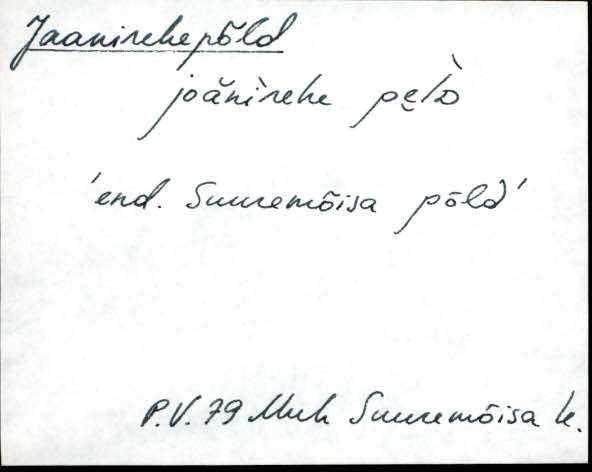 Jaanirehepõld
joäǹìrehe pe̮l̀D
'end. Suuremõisa põld'
P.V. 79 Muh Suuremõisa k.